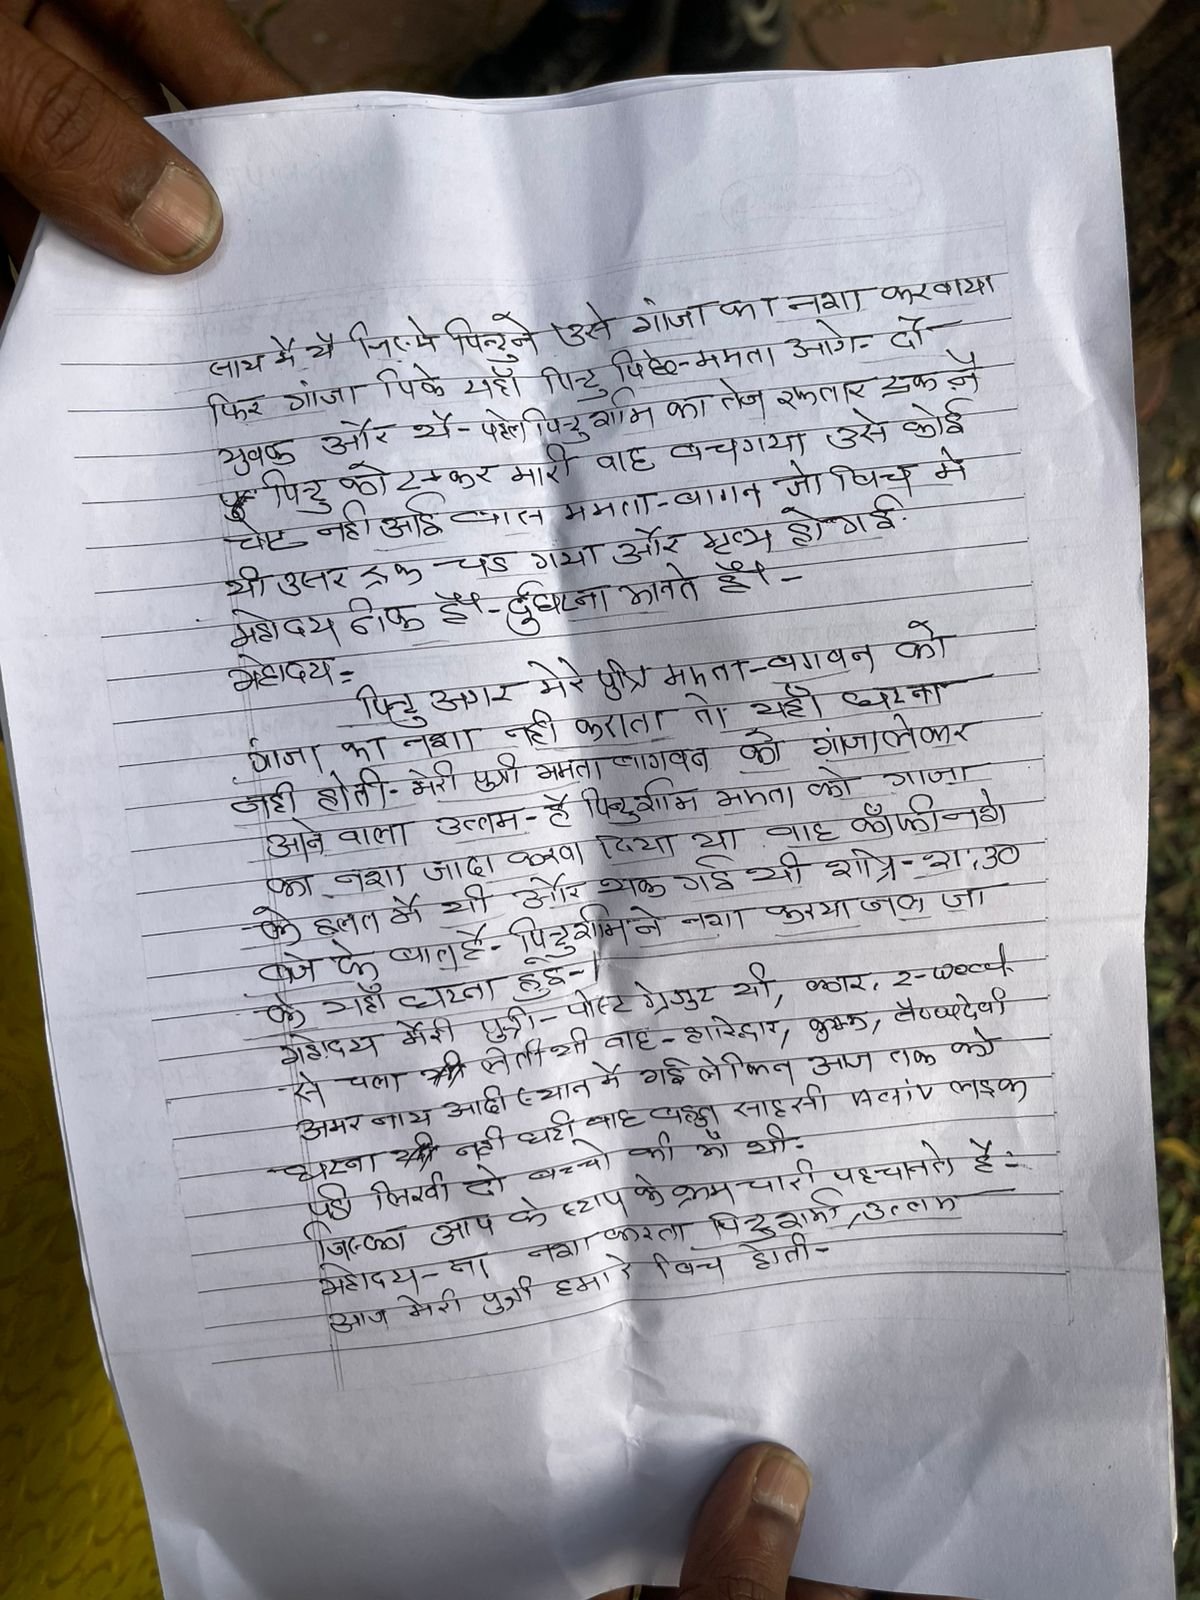 साथ में थे जिसमे पिन्टुने उसे गांजा का नशा करवाया
फिर गांजा पिके यहाँ पिन्टु पिछे-ममता आगे- दो-
युवक और थे- पहले पिन्टु शर्मि का तेज रफ्तार ट्रक ने
पिन्टु को टक्कर मारी वाह बचगया उसे कोई
चोट नही आई ममता-बागन जो बिच मे
थी उसर ट्रक चड गया और मृत्य हो गई.
महोदय ठीक है- दुर्घटना मानते है-
महोदय=
पिन्टु अगर मेरे पुत्रि ममता-बगवन को
गांजा का नशा नही कराता तो यहाँ घटना
नही होती- मेरी पुत्री ममता बागवन को गांजालेकर
आने वाला उत्तम- है पिन्टुशर्मि ममता को गाजा
का नशा जादा करवा दिया था वाह काँफीनशे
के हलत मे थी और थक गई थी रात्रि-
बजे के बातहै- पिन्टुशर्मिने नशा करया जब जा
के यहाँ घटना हुइ-।
महोदय मेरी पुत्री- पोस्ट ग्रेजुट थी, कार, 2-weel
से चला लेतीथी वाह- हारिद्वार, वैष्णदेवी
अमर नाथ आदी स्थान मे गई लेकिन आज तक को
घटना नही घटी वाह बहुत साहसी Activ लडक
पडी लिखी दो बच्चो की माँ थी-
जिस्का आप के स्टाप के क्रमचारी पहचानते है:-
महोदय- ना नशा करता पिन्टु शर्मा, उत्तम
आज मेरी पुत्री हमारे बिच होती-